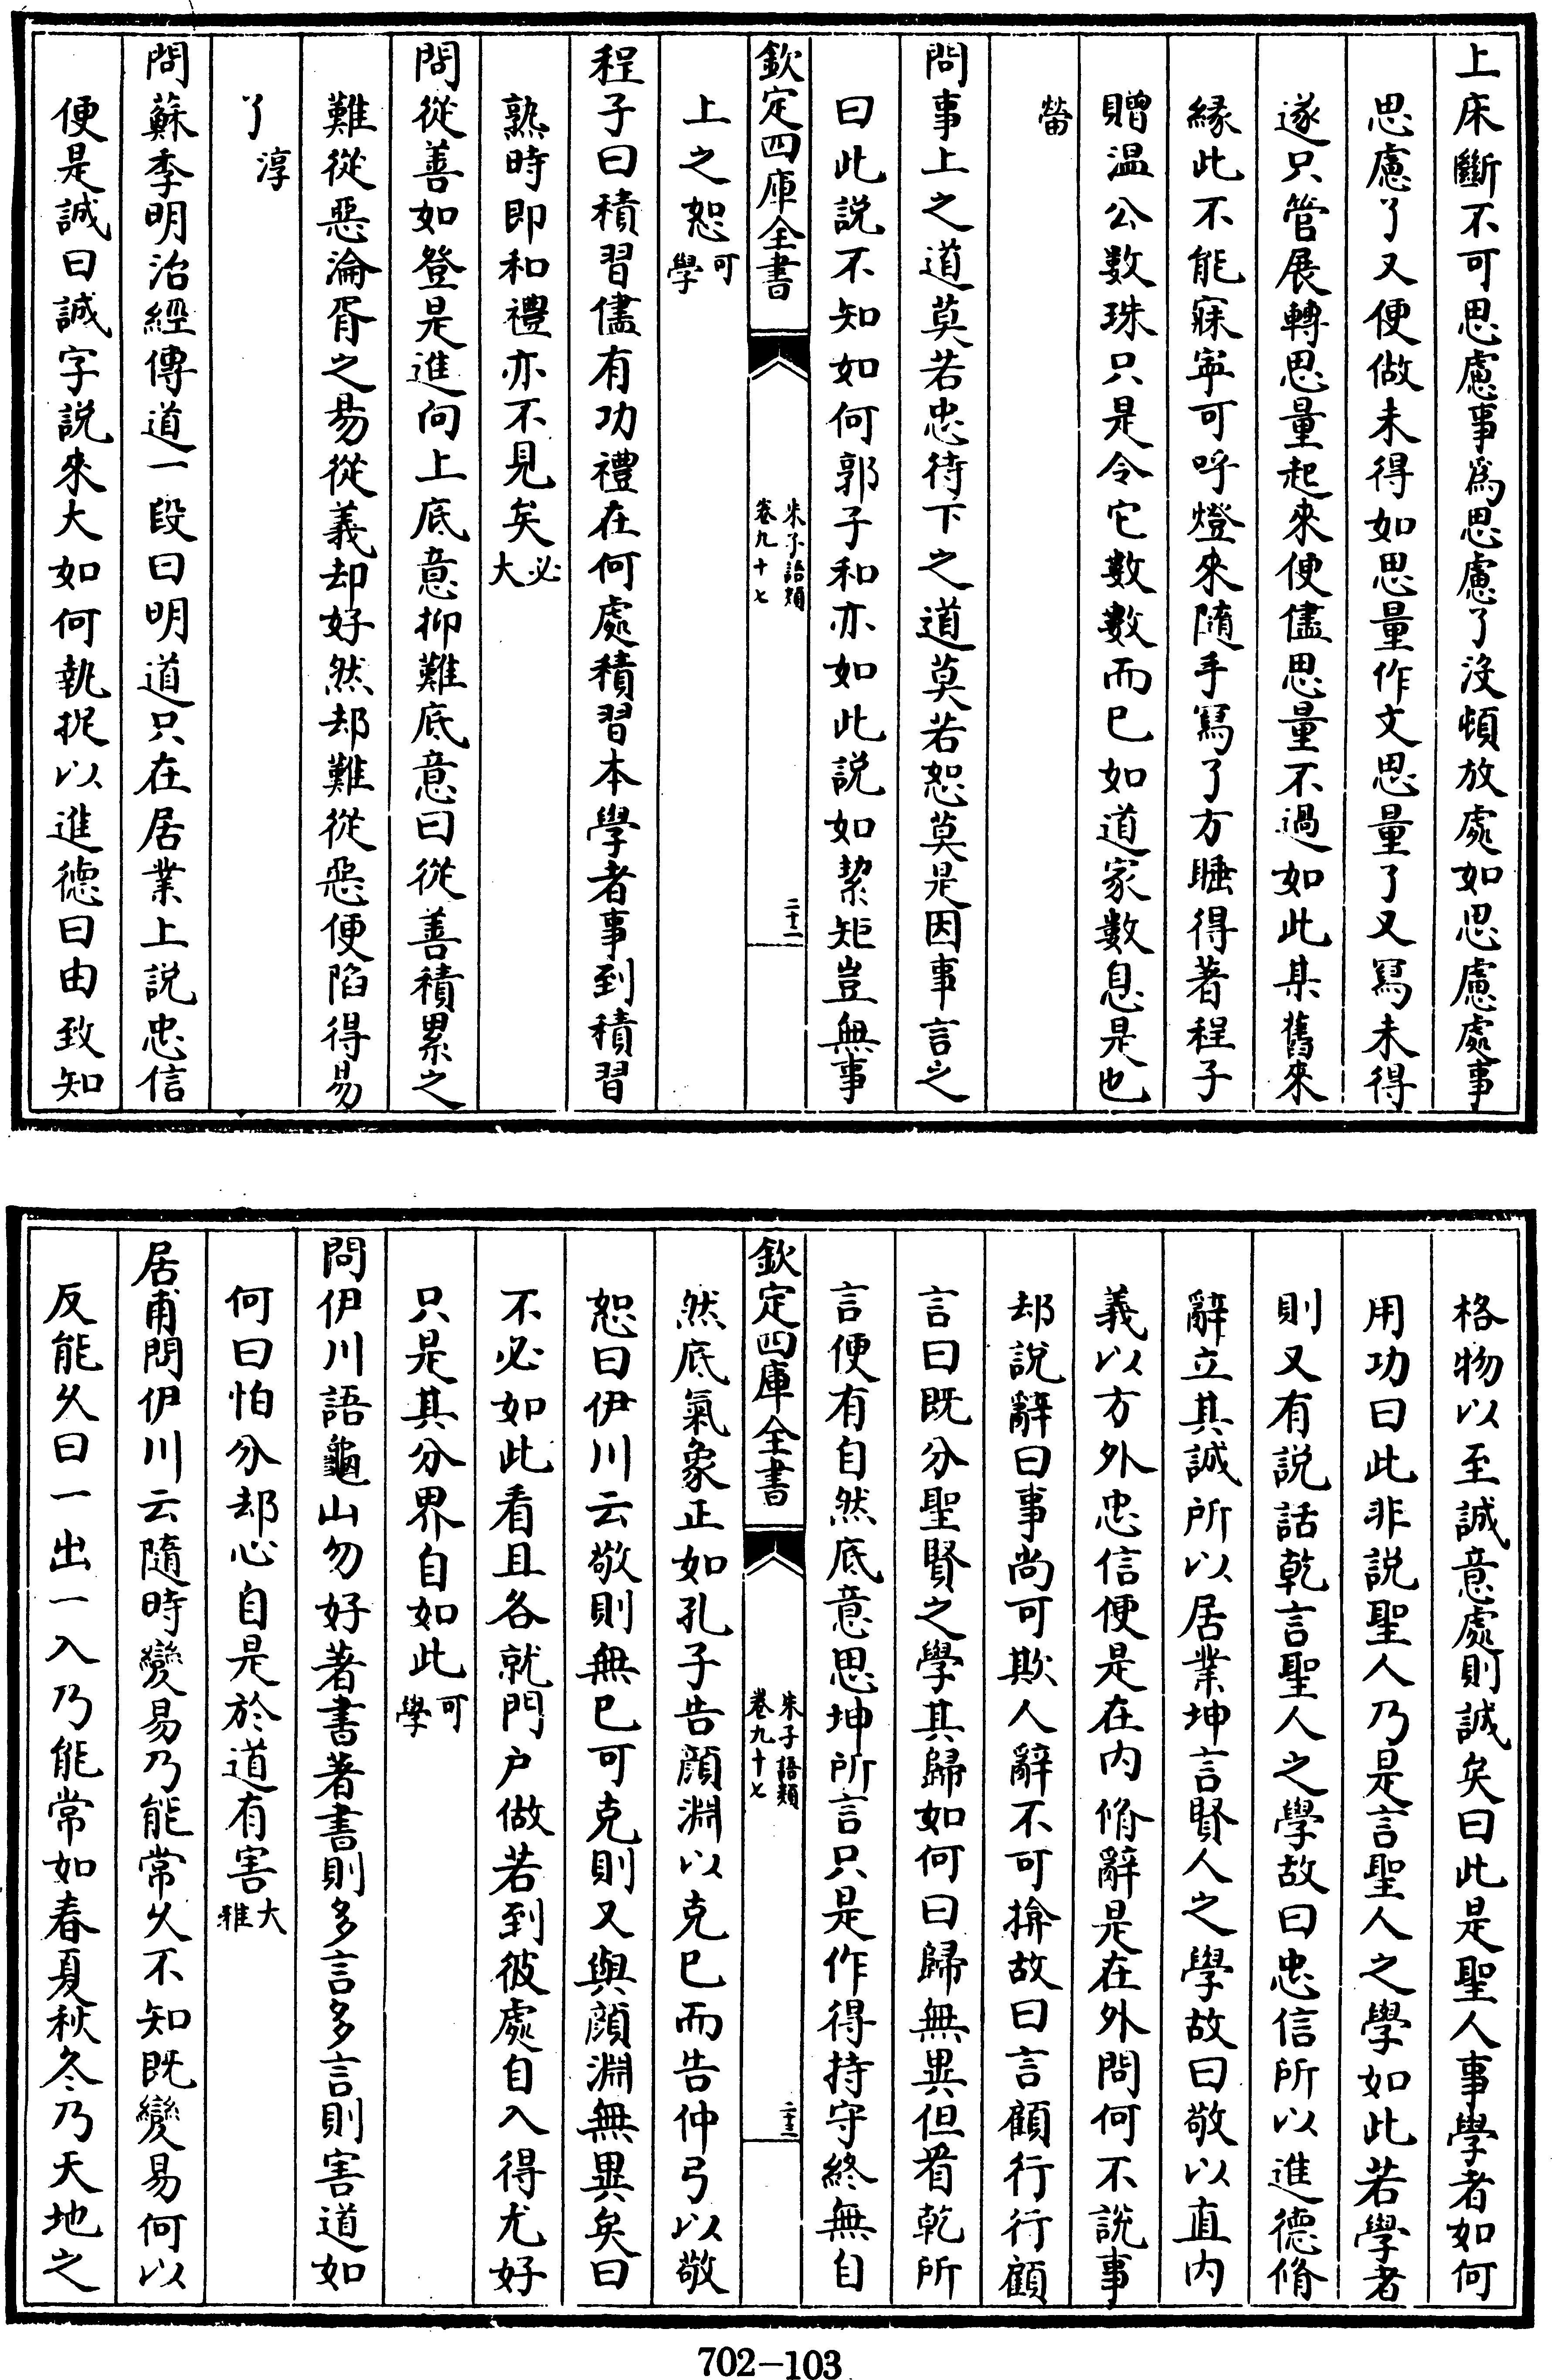 上床斷不可思慮事爲思慮了沒頓放處如思慮處事
思慮了又便做未得如思量作文思量了又寫未得
遂只管展轉思量起來便儘思量不過如此某舊來
緣此不能寐寧可呼燈來隨手寫了方睡得著程子
贈温公數珠只是令它數數而已如道家數息是也
㽦
問事上之道莫若忠待下之道莫若恕莫是因事言之
曰此説不知如何郭子和亦如此説如絜矩豈無事
欽定四庫全書
朱子語類
卷九十七
二十二
上之恕可學
程子曰積習儘有功禮在何處積習本學者事到積習
熟時即和禮亦不見矣必大
問從善如登是進向上底意抑難底意曰從善積累之
難從惡淪胥之易從義却好然却難從惡便陷得易
了淳
問蘇季明治經傳道一段曰明道只在居業上説忠信
便是誠曰誠字説來大如何執捉以進德曰由致知
格物以至誠意處則誠矣曰此是聖人事學者如何
用功曰此非説聖人乃是言聖人之學如此若學者
則又有説話乾言聖人之學故曰忠信所以進德脩
辭立其誠所以居業坤言賢人之學故曰敬以直内
義以方外忠信便是在内脩辭是在外問何不説事
却説辭曰事尚可欺人辭不可揜故曰言顧行行顧
言曰既分聖賢之學其歸如何曰歸無異但看乾所
言便有自然底意思坤所言只是作得持守終無自
欽定四庫全書
朱子語類
卷九十七
二十三
然底氣象正如孔子告顔淵以克已而告仲弓以敬
恕曰伊川云敬則無已可克則又與顔淵無異矣曰
不必如此看且各就門户做若到彼處自入得尤好
只是其分界自如此可學
問伊川語龜山勿好著書著書則多言多言則害道如
何曰怕分却心自是於道有害大雅
居甫問伊川云隨時變易乃能常久不知既變易何以
反能久曰一出一入乃能常如春夏秋冬乃天地之
702-103